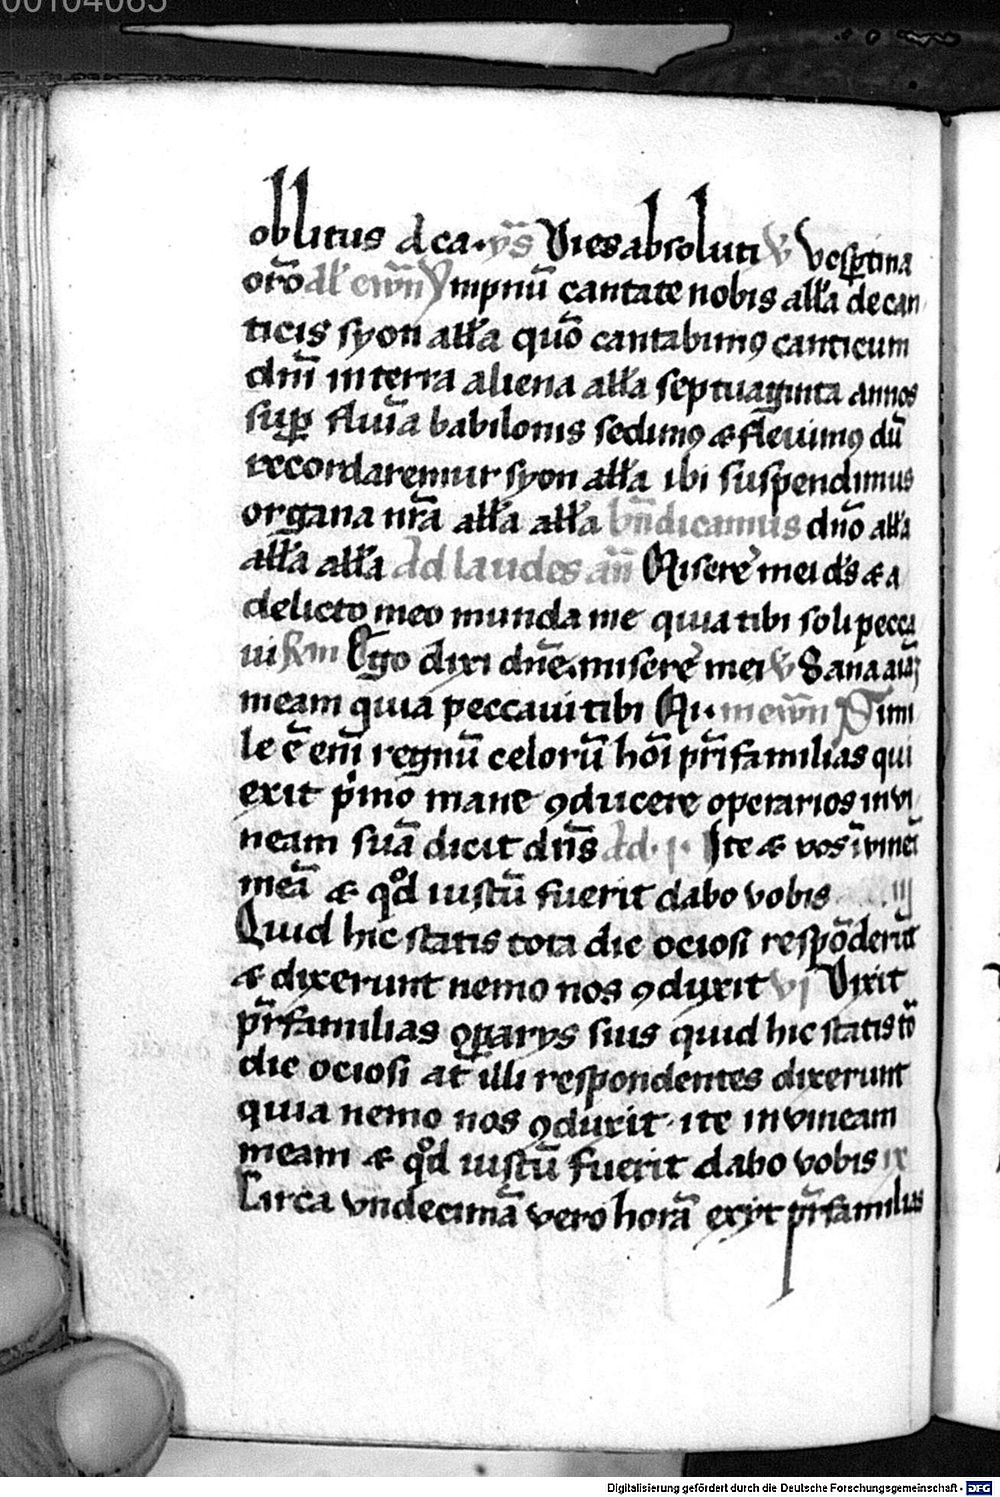 00104065
oblitus d ca. ys Dies absoluti v̄ vesp̱tina
or̄o ad̄ ew̄n Ympnū cantate nobis all'a de can
ticis syon all'a quō cantabimꝰ canticum
dn̄i in terra aliena all'a septuaginta annos
sup̱ flūia babilonis sedimꝰ & fleuimꝰ dū
recordaremur syon all'a ibi suspendimus
organa nr̄a all'a all'a bn̄dicamus dn̄o all'a
all'a all'a Ad laudes an̄ Misere' mei d's & a
delicto meo munda me quia tibi soli pecca
ui Ego dixi dn̄e misere' mei v̄ Sana aīaꝫ
meam quia peccaui tibi Mi. Simi
le ē em̄ regnū celorū hoī pr̄ifamilias qui
exit p'mo mane ꝯducere operarios in vi
neam suā dicit dn̄s Ad . j . Ite & vos ī vineā
meā & qͦd iustū fuerit dabo vobis iij
Quid hic statis tota die ociosi respōderūt
& dixerunt nemo nos ꝯduxit vj Dixit
pr̄familias op̱arys suis quid hic statis to
die ociosi at illi respondentes dixerunt
quia nemo nos ꝯduxit . ite in vineam
meam & qͦd iustū fuerit dabo vobis ix
Circa vndecimā vero horā exyt pr̄familias
Digitalisierung gefördert durch die Deutsche Forschungsgemeinschaft - DFG